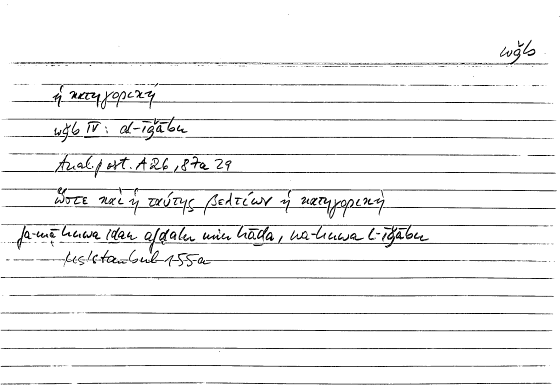 wǧb
ἡ κατηγορική
wǧb IV: al-īǧābu
Anal. post. A 26, 87a 29
ὥστε καὶ ἡ ταύτης βελτίων ἡ κατηγορική
fa-mā huwa iḏan afḍalu min hāḏā, wa-huwa l-īǧābu
Ms Istanbul 155a